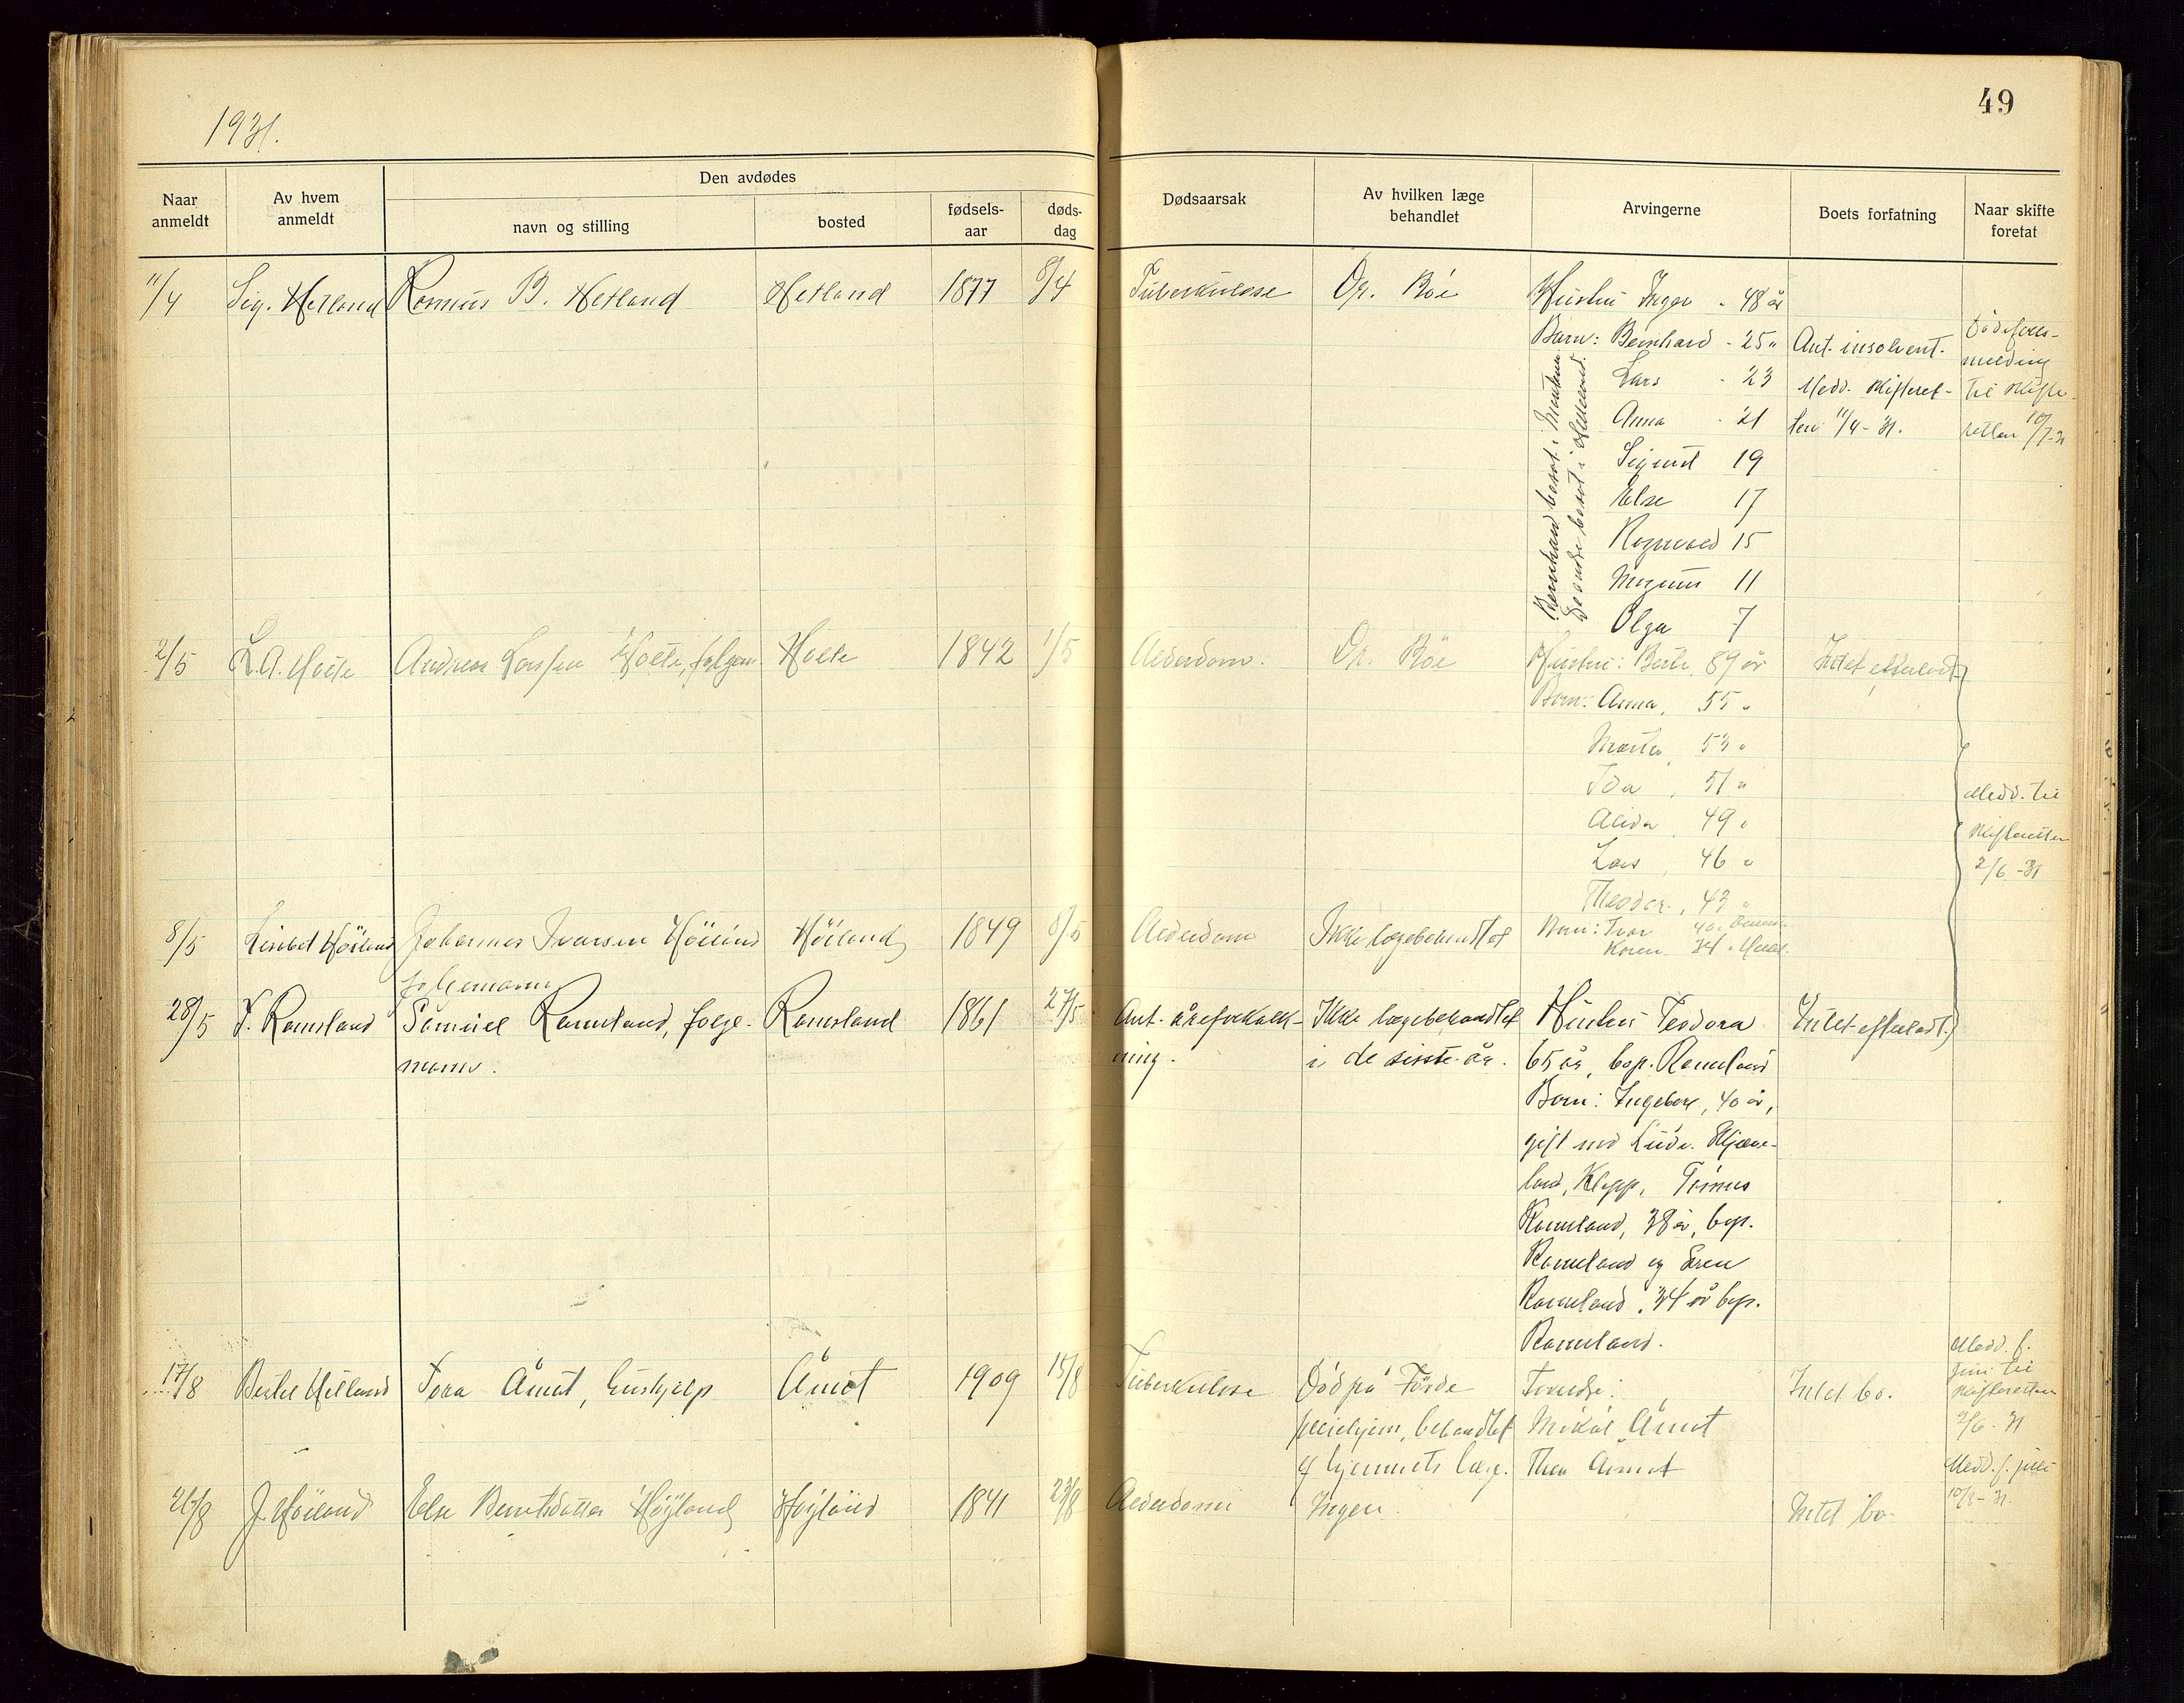 49
1931.
Naar anmeldt
Av hvem anmeldt
Den avdødes
navn og stilling
bosted
fødselsaar
dødsdag
Dødsaarsak
Av hvilken læge behandlet
Arvingerne
Boets forfatning
Naar skifte foretat
11/4 Sig. Hetland Rasmus B. Hetland Hetland 1877 8/4 Tuberkulose Dr. Böe Hustru Inger - 48 år
Barn: Bernhard - 25 " Ant. insolvent. Dödsfalls-
melding
Lars - 23 Medd. skifteret- til skifte-
Anna - 21 ten 11/4-31. retten 10/7-31
Sigurd 19
Else 17
Ragnvald 15
Magnus 11
Olga 7
Bernhard bosat i
bosat i
2/5 L.A. Holte Andreas Larssen Holte, Holte 1842 1/5 Alderdom. Dr. Böe Hustru: Berte, 89 år Intet efterladt
Barn: Anna, 55 "
Marta, 53 "
Ida, 51 "
Alida, 49 "
Lars, 46 "
Theodor, 43 "
Medd. til
skifteretten
2/6-31
8/5 Lisabet Höiland Johannes Ivarsen Höiland Höiland 1849 8/5 Alderdom Ikke lægebehandlet Barn: Ivar 40
folgemann Karen 34 "
28/5 T. Ramsland Samuel Ramsland, folge- Ramsland 1861 27/5 Ant. åreforkalk- Ikke lægebehandlet Hustru Teodora Intet efterladt
mann. ning. i de siste år. 65 år, bop. Ramsland
Barn: Ingeborg, 40 år,
gift med Ludv.
land, Klepp,
Ramsland, 38 år, bop.
Ramsland og Sren
Ramsland, 34 år bop.
Ramsland.
17/8 Bertel Helland Tora Åmot, hushjelp Åmot 1909 15/8 Tuberkulose Död på Förde Forældre: Intet bo. Medd. f.
juni til
skifteretten
2/6-31
pleiehjem, behandlet Mikal Åmot
af hjemmets læge. Thea Åmot
Medd. f. juli
10/8-31.
26/8 J. Höiland Else Berntsdatter Höyland Höyland 1841 23/8 Alderdom Ingen. Intet bo.